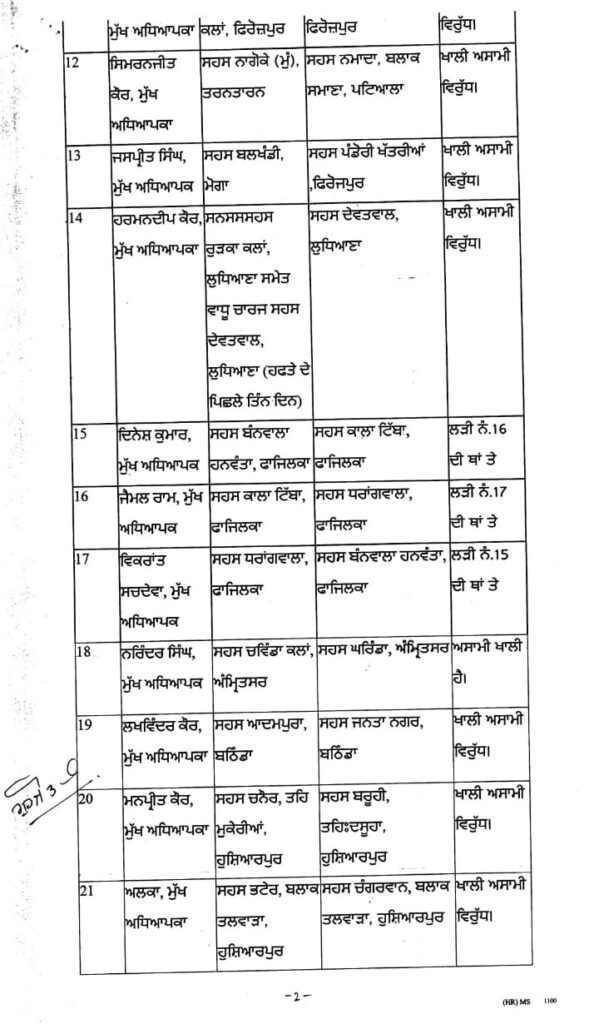 ਮੁੱਖ ਅਧਿਆਪਕਾ ਕਲਾਂ, ਫਿਰੋਜ਼ਪੁਰ ਫਿਰੋਜ਼ਪੁਰ ਵਿਰੁੱਧ।
12 ਸਿਮਰਨਜੀਤ ਸਹਸ ਨਾਗੋਕੇ (ਮੁੰ), ਸਹਸ ਨਮਾਦਾ, ਬਲਾਕ ਖਾਲੀ ਅਸਾਮੀ
ਕੌਰ, ਮੁੱਖ ਤਰਨਤਾਰਨ ਸਮਾਣਾ, ਪਟਿਆਲਾ ਵਿਰੁੱਧ।
ਅਧਿਆਪਕਾ
13 ਜਸਪ੍ਰੀਤ ਸਿੰਘ, ਸਹਸ ਬਲਖੰਡੀ, ਸਹਸ ਪੰਡੋਰੀ ਖੱਤਰੀਆਂ ਖਾਲੀ ਅਸਾਮੀ
ਮੁੱਖ ਅਧਿਆਪਕ ਮੋਗਾ ,ਫਿਰੋਜਪੁਰ ਵਿਰੁੱਧ।
14 ਹਰਮਨਦੀਪ ਕੌਰ, ਸਨਸਸਸਹਸ ਸਹਸ ਦੇਵਤਵਾਲ, ਖਾਲੀ ਅਸਾਮੀ
ਮੁੱਖ ਅਧਿਆਪਕਾ ਰੁੜਕਾ ਕਲਾਂ, ਲੁਧਿਆਣਾ ਵਿਰੁੱਧ।
ਲੁਧਿਆਣਾ ਸਮੇਤ
ਵਾਧੂ ਚਾਰਜ ਸਹਸ
ਦੇਵਤਵਾਲ,
ਲੁਧਿਆਣਾ (ਹਫਤੇ ਦੇ
ਪਿਛਲੇ ਤਿੰਨ ਦਿਨ)
15 ਦਿਨੇਸ਼ ਕੁਮਾਰ, ਸਹਸ ਬੰਨਵਾਲਾ ਸਹਸ ਕਾਲਾ ਟਿੱਬਾ, ਲੜੀ ਨੰ.16
ਮੁੱਖ ਅਧਿਆਪਕ ਹਨਵੰਤਾ, ਫਾਜਿਲਕਾ ਫਾਜਿਲਕਾ ਦੀ ਥਾਂ ਤੇ
16 ਜੈਮਲ ਰਾਮ, ਮੁੱਖ ਸਹਸ ਕਾਲਾ ਟਿੱਬਾ, ਸਹਸ ਧਰਾਂਗਵਾਲਾ, ਲੜੀ ਨੰ.17
ਅਧਿਆਪਕ ਫਾਜਿਲਕਾ ਫਾਜਿਲਕਾ ਦੀ ਥਾਂ ਤੇ
17 ਵਿਕਰਾਂਤ ਸਹਸ ਧਰਾਂਗਵਾਲਾ, ਸਹਸ ਬੰਨਵਾਲਾ ਹਨਵੰਤਾ, ਲੜੀ ਨੰ.15
ਸਚਦੇਵਾ, ਮੁੱਖ ਫਾਜਿਲਕਾ ਫਾਜਿਲਕਾ ਦੀ ਥਾਂ ਤੇ
ਅਧਿਆਪਕ
18 ਨਰਿੰਦਰ ਸਿੰਘ, ਸਹਸ ਚਵਿੰਡਾ ਕਲਾਂ, ਸਹਸ ਘਰਿੰਡਾ, ਅੰਮ੍ਰਿਤਸਰ ਅਸਾਮੀ ਖਾਲੀ
ਮੁੱਖ ਅਧਿਆਪਕ ਅੰਮ੍ਰਿਤਸਰ ਹੈ।
19 ਲਖਵਿੰਦਰ ਕੌਰ, ਸਹਸ ਆਦਮਪੁਰਾ, ਸਹਸ ਜਨਤਾ ਨਗਰ, ਖਾਲੀ ਅਸਾਮੀ
ਮੁੱਖ ਅਧਿਆਪਕਾ ਬਠਿੰਡਾ ਬਠਿੰਡਾ ਵਿਰੁੱਧ।
20 ਮਨਪ੍ਰੀਤ ਕੌਰ, ਸਹਸ ਚਨੌਰ, ਤਹਿ ਸਹਸ ਬਰੂਹੀ, ਖਾਲੀ ਅਸਾਮੀ
ਮੁੱਖ ਅਧਿਆਪਕਾ ਮੁਕੇਰੀਆਂ, ਤਹਿਃਦਸੂਹਾ, ਵਿਰੁੱਧ।
ਹੁਸ਼ਿਆਰਪੁਰ ਹੁਸ਼ਿਆਰਪੁਰ
21 ਅਲਕਾ, ਮੁੱਖ ਸਹਸ ਭਟੇਰ, ਬਲਾਕ ਸਹਸ ਚੰਗਰਵਾਨ, ਬਲਾਕ ਖਾਲੀ ਅਸਾਮੀ
ਅਧਿਆਪਕਾ ਤਲਵਾੜਾ, ਤਲਵਾੜਾ, ਹੁਸ਼ਿਆਰਪੁਰ ਵਿਰੁੱਧ।
ਹੁਸ਼ਿਆਰਪੁਰ
-2-
(HR) MS 1100